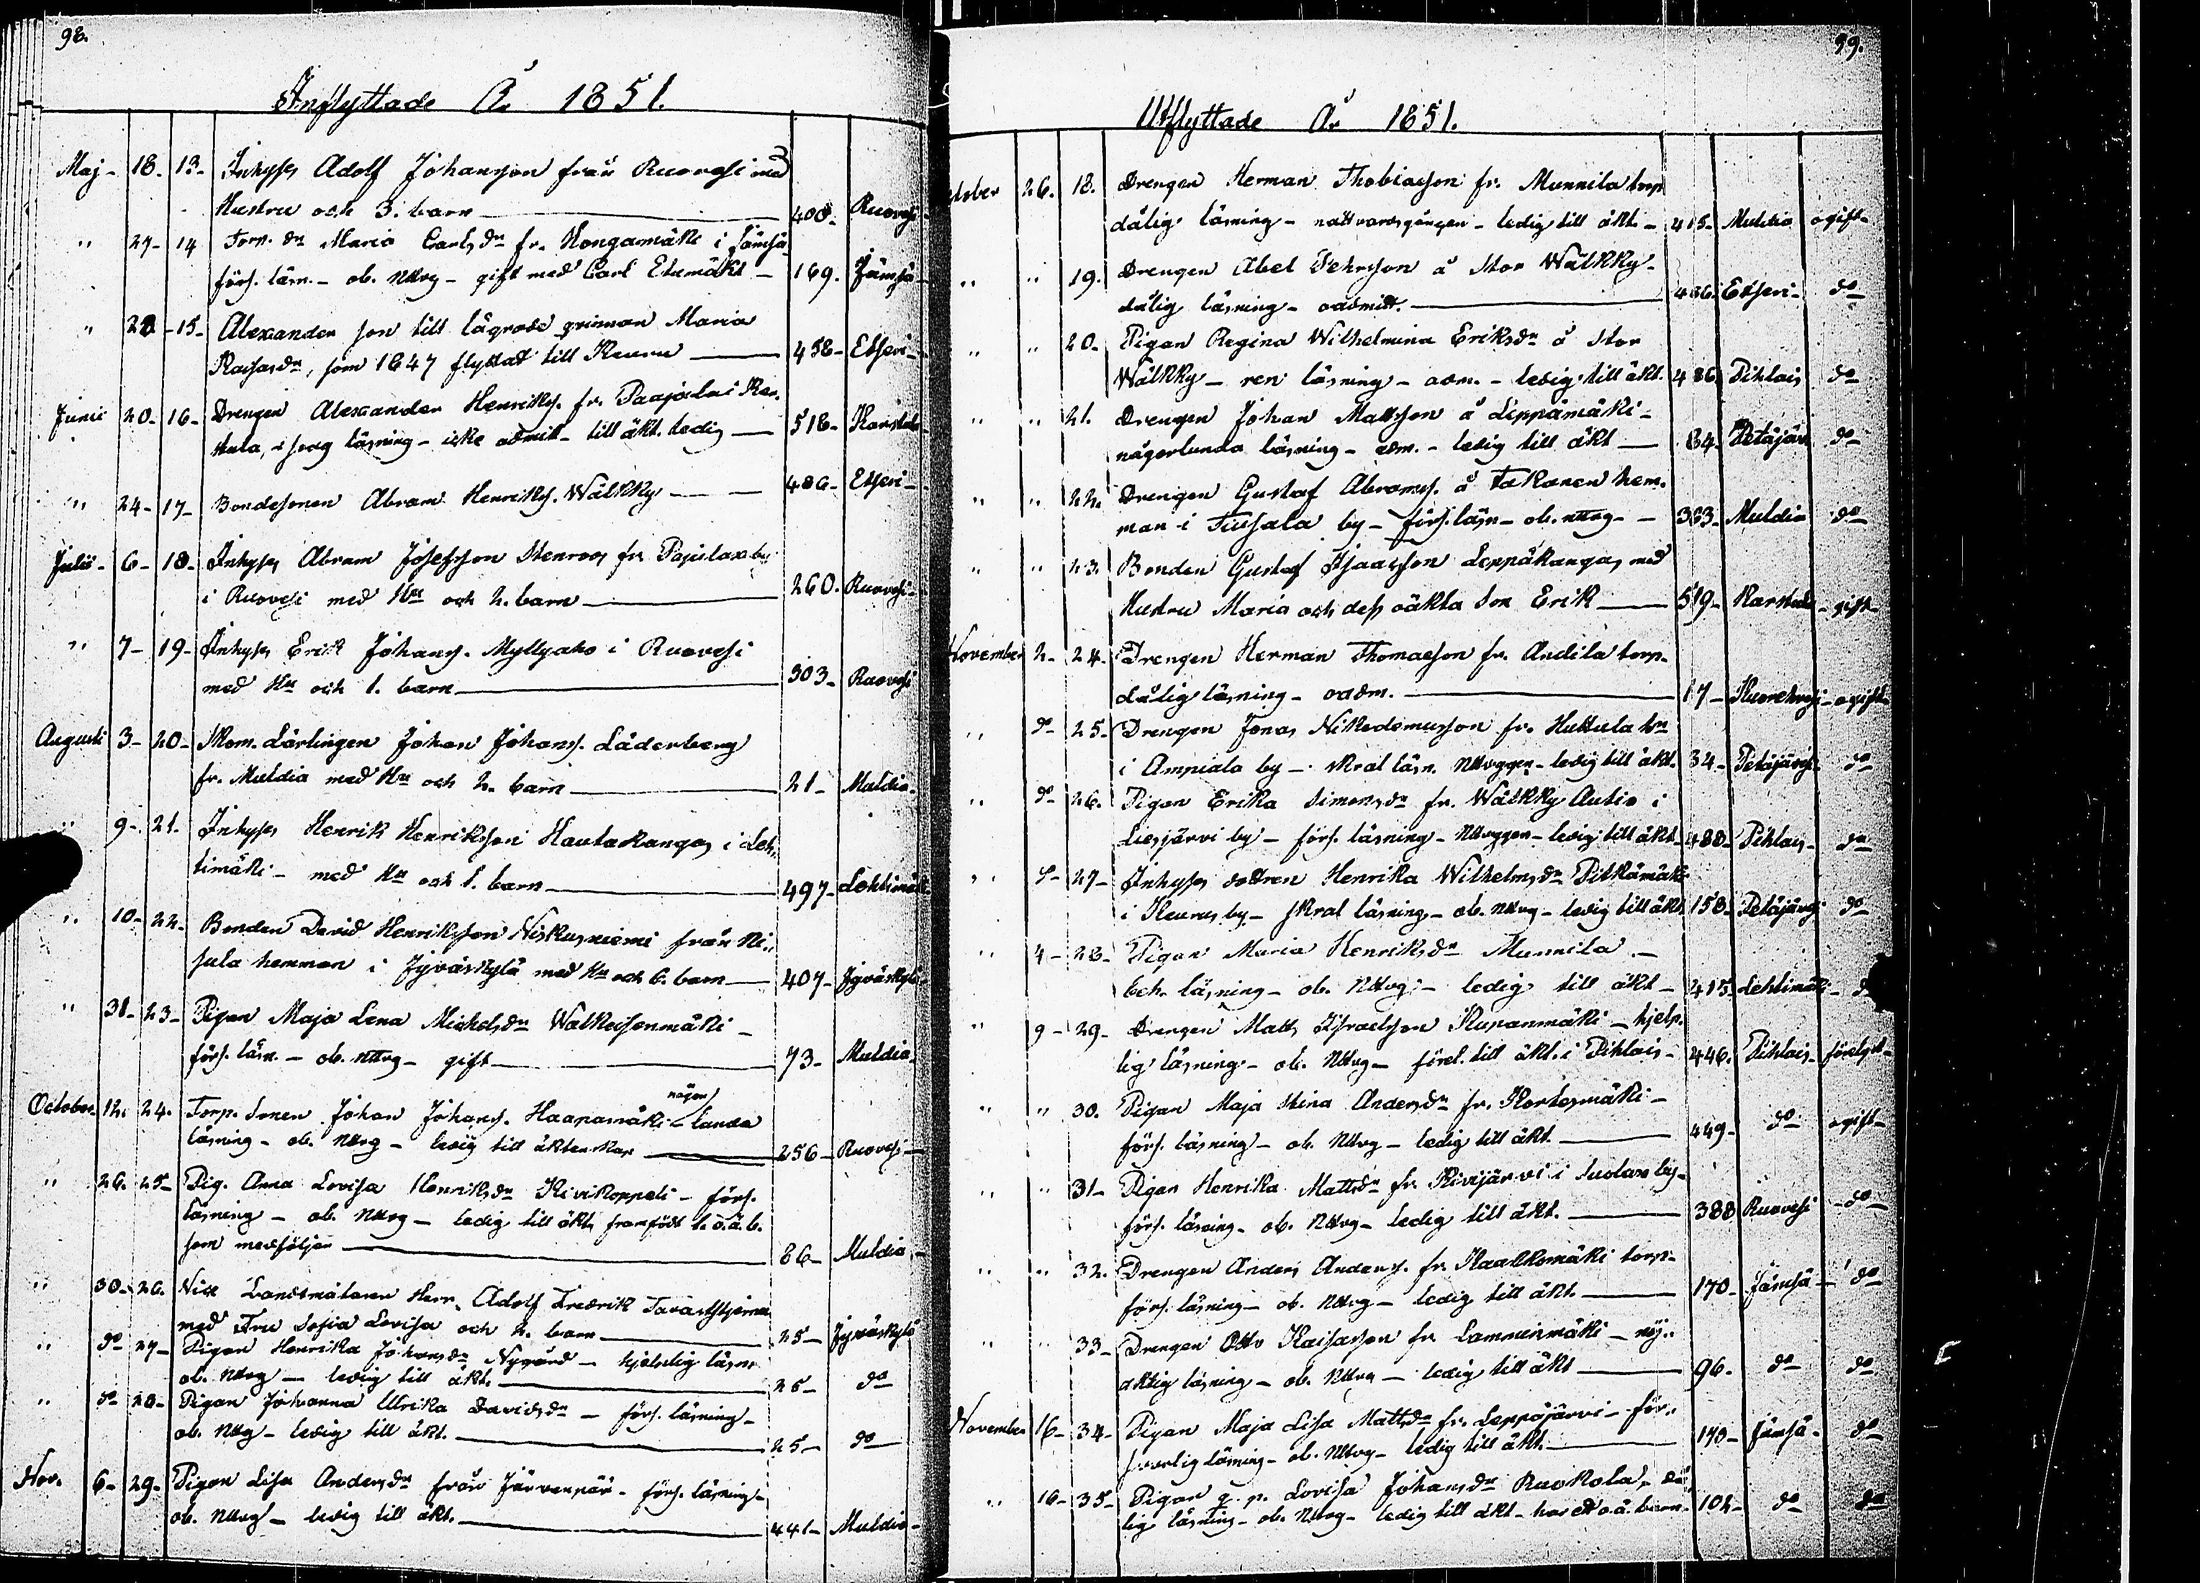 98.
Inflyttade År 1851.
Maj - 18. 13- Inhyses Adolf Johansson från Ruovesi med
Hustru och 3. barn 408. Ruovesi
" 27- 14 Torp. dr Maria Carlsdr fr. Kongamäki i Jämsä
förs. läsn. - ob. Nttvg - gift med Carl Etumäki - 169. Jämsä
" 28 - 15- Alexander son till lägrade qvinnan Maria
Kaisasdr, som 1847 flyttat till Keuru 458- Etseri-
Junii 20- 16- Drengen Alexander Henriks. fr. Paajala i Kar-
stula, svag läsning - icke admit. till äkt. ledig 518- Karstula
" 24- 17- Bondesonen Abram Henriks. Wälkky 486- Etseri-
Julii- 6- 18- Inhyses Abram Josefsson Stenroos fr. Pajulax by
i Ruovesi med Hu och 2. barn 260. Ruovesi-
" 7- 19- Inhyses Erik Johans. Myllyaho i Ruovesi
med Hu och 1. barn 303- Ruovesi
Augusti 3- 20- Skom. Lärlingen Johan Johans. Läderberg
fr. Muldia med Hu och 2. barn 21- Muldia.
" 9- 21. Inhyses Henrik Henriksson Hautakangas i Leh-
timäki - med Hu och 1. barn 497- Lehtimäki
" 10- 22. Bonden David Henriksson Niskusniemi från Ni-
sula hemman i Jyväskylä med Hu och 6. barn 407- Jyväskylä
" 31- 23- Pigan Maja Lena Michelsdr Walkeisenmäki -
förs. läsn. - ob. Nttvg - gift 73- Muldia.
October 12. 24. Torp. Sonen Johan Johans. Haapamäki - någorlunda
läsning - ob. Nttvg - ledig till äktenskap 256- Ruovesi-
" 26. 25- Pig. Anna Lovisa Henriksdr Kivikoppeli - förs.
läsning - ob. Nttvg - ledig till äkt, framfödt 1. o.ä.b.
som medföljer 86- Muldia-
" 30- 26. Vice Landtmätaren Herr Adolf Fredrik Tavaststjerna
med Fru Sofia Lovisa och 2. barn 25- Jyväskylä
" do 27- Pigan Henrika Johansdr Nygård - hjelplig läsn.
ob. Nttvg - ledig till äkt. 25- do
" do 28- Pigan Johanna Ulrika Davidsdr - förs. läsning -
ob. Nttvg - ledig till äkt. 25- do
Nov. 6- 29- Pigan Lisa Andersdr från Järvenpää - förs. läsning -
ob. Nttvg - ledig till äkt. 441- Muldia-
99.
Utflyttade År 1851.
October 26. 18. Drengen Herman Thobiasson fr. Munnila torp
dålig läsning - nattvardsgången - ledig till äkt - 415- Muldia ogift-
" " 19. Drengen Abel Pehrsson å Stor Wälkky -
dålig läsning - oadmitt. 486. Etseri- do
" " 20- Pigan Regina Wilhelmina Eriksdr å Stor
Wälkky - ren läsning - adm. - ledig till äkt. 486 Pihlais do
" " 21. Drengen Johan Mattsson å Leppämäki -
någorlunda läsning - adm. - ledig till äkt 84- Petäjäv. do
" " 22. Drengen Gustaf Abrams. å Takanen hem-
man i Tiusala by - förs. läsn - ob. nttvg - 383- Muldia do
" " 23. Bonden Gustaf Isaacsson Leppäkangas med
Hustru Maria och dess oäkta Son Erik 519- Karstula - gift
November 2- 24- Drengen Herman Thomasson fr. Andila torp-
dålig läsning - oadm. 17- Kuorehvesi - ogift
" do 25- Drengen Jonas Nikodemusson fr. Huttula hn
i Ampiala by - skral läsn. Nttvggen - ledig till äkt. 34- Petäjävesi- do
" do 26. Pigan Erika Simonsdr fr. Wälkky Autio i
Liesjärvi by - förs. läsning - Nttvggen - ledig till äkt. 488- Pihlais- do
" do 27- Inhyses dottren Henrika Wilhelmsdr Pitkämäki
i Keuru by - skral läsning - ob. Nttvg - ledig till äkt 158- Petäjävesi do
" 4- 28- Pigan Maria Henriksdr Munnila -
beh. läsning - ob. Nttvg - ledig till äkt - 415- Lehtimäki- do
" 9- 29- Drengen Matts Israelsson Kupanmäki - hjelp-
lig läsning - ob. Nttvg - förel. till äkt. i Pihlais - 446. Pihlais- förelyst-
" " 30. Pigan Maja Stina Andersdr fr. Kortesmäki -
förs. läsning - ob. Nttvg - ledig till äkt 449- do ogift-
" " 31- Pigan Henrika Mattsdr fr. Kivijärvi i Suolax by-
förs. läsning - ob. Nttvg - ledig till äkt. 388 Ruovesi - do
" " 32. Drengen Anders Anders. fr. Kaakkomäki torp-
förs. läsning - ob. Nttvg - ledig till äkt 170- Jämsä - do
" " 33- Drengen Otto Kaisasson fr. Lamminmäki - nöj-
aktig läsning - ob. Nttvg - ledig till äkt 96. do do
November 16- 34- Pigan Maja Lisa Mattsdr fr. Leppäjärvi - för-
svarlig läsning - ob. Nttvg - ledig till äkt. 170- Jämsä- do
" 16- 35- Pigan q. p. Lovisa Johansdr Ruokola, då-
lig läsning - ob. Nttvg - ledig till äkt - har ett o.ä. barn- 102- do do